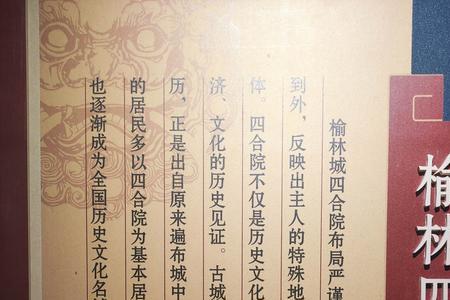 榆林四
榆林城四合院布局严谨
到外，反映出主人的特殊地
体。四合院不仅是历史文化
济、文化的历史见证。古城
历，正是出自原来遍布城中
的居民多以四合院为基本居
也逐渐成为全国历史文化名